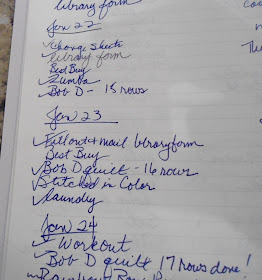 library form
Jan 22
✓Change Sheets
library form
Best Buy
✓Zumba
✓Bob D - 15 rows
Jan 23
✓Fill out & mail library form
Best Buy
✓Bob D quilt - 16 rows
✓Stitched in Color
✓Laundry
Jan 24
✓Workout
✓Bob D quilt 17 rows done!